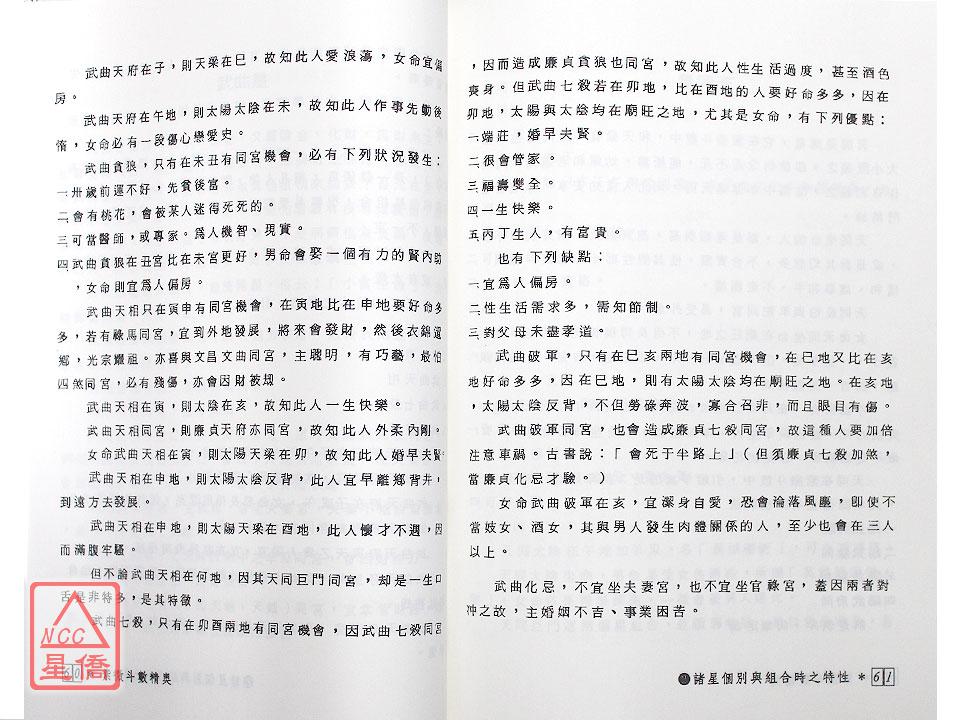 武曲天府在子，則天梁在巳，故知此人愛浪蕩，女命宜偏
房。
武曲天府在午地，則太陽太陰在未，故知此人作事先勤後
惰，女命必有一段傷心戀愛史。
武曲貪狼，只有在未丑有同宮機會，必有下列狀況發生：
一卅歲前運不好，先貧後富。
二會有桃花，會被某人迷得死死的。
三可當醫師，或專家。為人機智、現實。
四武曲貪狼在丑宮比在未宮更好，男命會娶一個有力的賢內助
，女命則宜為人偏房。
武曲天相只在寅申有同宮機會，在寅地比在申地要好命多
多，若有祿馬同宮，宜到外地發展，將來會發財，然後衣錦還
鄉，光宗耀祖。亦喜與文昌文曲同宮，主聰明，有巧藝，最怕
四煞同宮，必有殘傷，亦會因財被刼。
武曲天相在寅，則太陰在亥，故知此人一生快樂。
武曲天相同宮，則廉貞天府亦同宮，故知此人外柔內剛。
女命武曲天相在寅，則太陽天梁在卯，故知此人婚早夫賢
武曲天相在申地，則太陽太陰反背，此人宜早離鄉背井，
到遠方去發展。
武曲天相在申地，則太陽天梁在酉地，此人懷才不遇，因
而滿腹牢騷。
但不論武曲天相在何地，因其天同巨門同宮，却是一生口
舌是非特多，是其特徵。
武曲七殺，只有在卯酉兩地有同宮機會，因武曲七殺同宮
NCC
星僑
60 紫微斗數精奧
，因而造成廉貞貪狼也同宮，故知此人性生活過度，甚至酒色
喪身。但武曲七殺若在卯地，比在酉地的人要好命多多，因在
卯地，太陽與太陰均在廟旺之地，尤其是女命，有下列優點：
一端莊，婚早夫賢。
二很會管家。
三福壽雙全。
四一生快樂。
五丙丁生人，有富貴。
也有下列缺點：
一宜為人偏房。
二性生活需求多，需知節制。
三對父母未盡孝道。
武曲破軍，只有在巳亥兩地有同宮機會，在巳地又比在亥
地好命多多，因在巳地，則有太陽太陰均在廟旺之地。在亥地
，太陽太陰反背，不但勞碌奔波，寡合召非，而且眼目有傷。
武曲破軍同宮，也會造成廉貞七殺同宮，故這種人要加倍
注意車禍。古書說：「會死于半路上」(但須廉貞七殺加煞，
當廉貞化忌才驗。
女命武曲破軍在亥，宜潔身自愛，恐會淪落風塵，即使不
當妓女、酒女，其與男人發生肉體關係的人，至少也會在三人
以上。
武曲化忌，不宜坐夫妻宮，也不宜坐官祿宮，蓋因兩者對
沖之故，主婚姻不吉、事業困苦。
諸星個別與組合時之特性 * 61